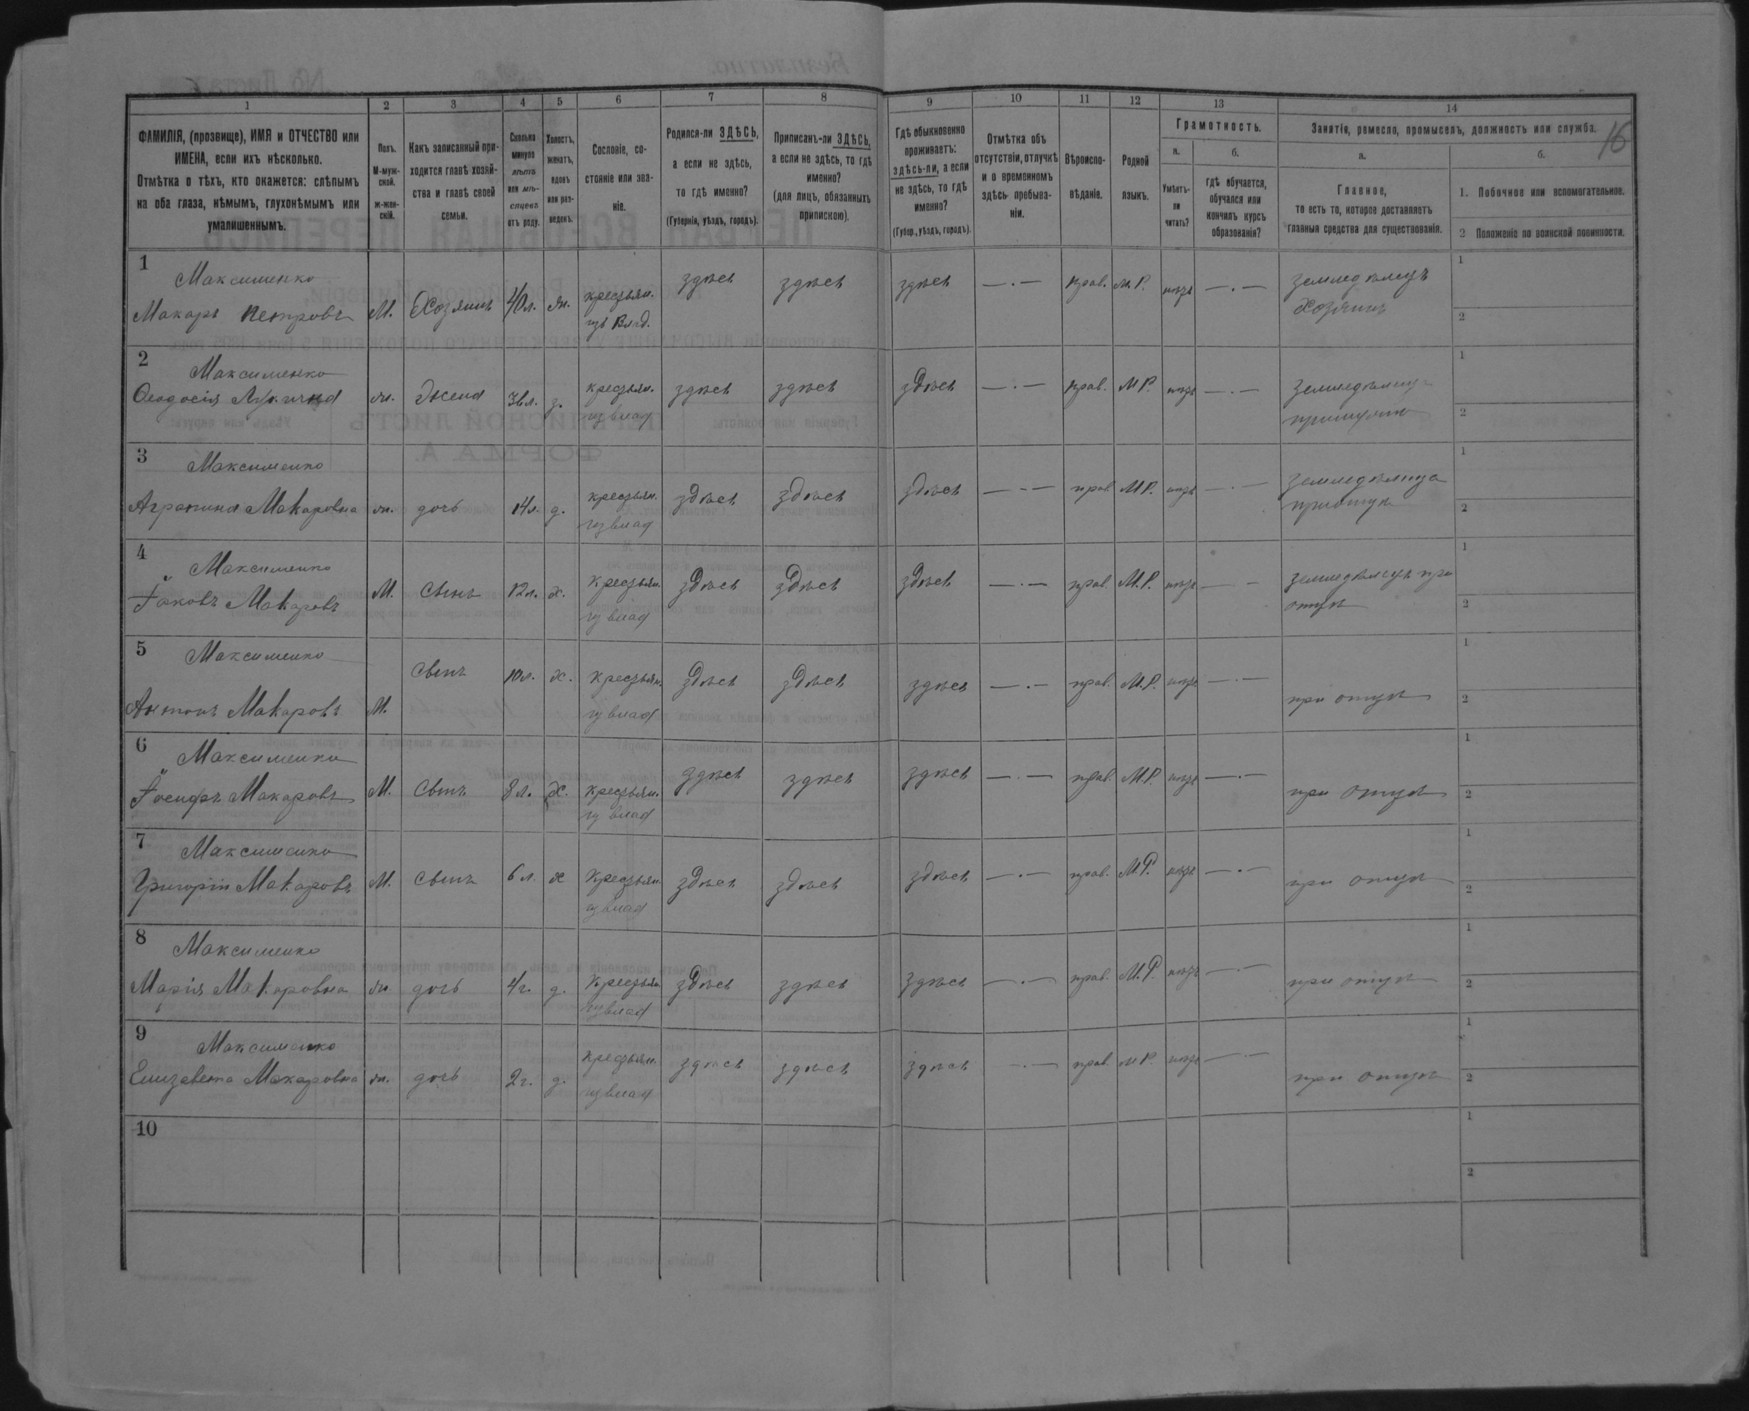 1 2 3 4 5 6 7 8 9 10 11 12 13 14
16
ФАМИЛІЯ, (прозвище), ИМЯ и ОТЧЕСТВО или
ИМЕНА, если ихъ нѣсколько.
Отмѣтка о тѣхъ, кто окажется: слѣпымъ
на оба глаза, нѣмымъ, глухонѣмымъ или
умалишеннымъ.
Полъ.
М-муж-
ской.
ж-жен-
скій.
Какъ записанный при-
ходится главѣ хозяй-
ства и главѣ своей
семьи.
Сколько
минуло
лѣтъ
или мѣ-
сяцевъ
отъ роду.
Холостъ,
женатъ,
вдовъ
или раз-
веденъ.
Сословіе, со-
стояніе или зва-
ніе.
Родился-ли ЗДѢСЬ,
а если не здѣсь,
то гдѣ именно?
(Губернія, уѣздъ, городъ).
Приписанъ-ли ЗДѢСЬ,
а если не здѣсь, то гдѣ
именно?
(для лицъ, обязанныхъ
припискою).
Гдѣ обыкновенно
проживаетъ:
здѣсь-ли, а если
не здѣсь, то гдѣ
именно?
(Губер., уѣздъ, городъ).
Отмѣтка объ
отсутствіи, отлучкѣ
и о временномъ
здѣсь пребыва-
ніи.
Вѣроиспо-
вѣданіе.
Родной
языкъ.
Грамотность.
а.
Умѣетъ-
ли
читать?
б.
гдѣ обучается,
обучался или
кончилъ курсъ
образованія?
Занятія, ремесло, промыселъ, должность или служба.
а.
Главное,
то есть то, которое доставляетъ
главныя средства для существованія.
б.
1. Побочное или вспомогательное.
2 Положеніе по воинской повинности.
1
Максименко
Макаръ Петровъ М. Хозяинъ 40л. ж. крестьян. здѣсь здѣсь здѣсь — . — прав. М.Р. нѣтъ — . — земледѣлецъ
изъ влад. хозяинъ
1
2
2
Максименко
Ѳеодосія ж. жена з. крестьян. здѣсь здѣсь здѣсь — . — прав. М.Р. нѣтъ — . —
из влад
1
2
3
Максименко
Агрепина Макаровна ж. дочь 14л. д. крестьян. здѣсь здѣсь здѣсь — - — прав М.Р. нѣтъ — . — земледѣлица
из влад при отцѣ
1
2
4
Максименко
Іаковъ Макаровъ М. сынъ 12л. х. крестьян здѣсь здѣсь здѣсь — . — прав М.Р. нѣтъ — – земледѣлецъ при
из влад отцѣ
1
2
5
Максименко
Антонъ Макаровъ М. сынъ 10л. х. крестьян здѣсь здѣсь здѣсь — . — прав. М.Р. нѣтъ — . — при отцѣ
из влад
1
2
6
Максименко
Іосифъ Макаровъ М. сынъ 8л. х. крестьян. здѣсь здѣсь здѣсь — . — прав. М.Р. нѣтъ — . — при отцѣ
из влад
1
2
7
Максименко
Григорій Макаровъ М. сынъ 6л. х крестьян здѣсь здѣсь здѣсь — . — прав. М.Р. нѣтъ — . — при отцѣ
из влад
1
2
8
Максименко
Марія Макаровна ж. дочь 4г. д. крестьян здѣсь здѣсь здѣсь — . — прав. М.Р. нѣтъ — . — при отцѣ
из влад
1
2
9
Максименко
Елизавета Макаровна ж. дочь 2г. д. крестьян. здѣсь здѣсь здѣсь — . — прав. М.Р. нѣтъ — . — при отцѣ
из влад
1
2
10
1
2